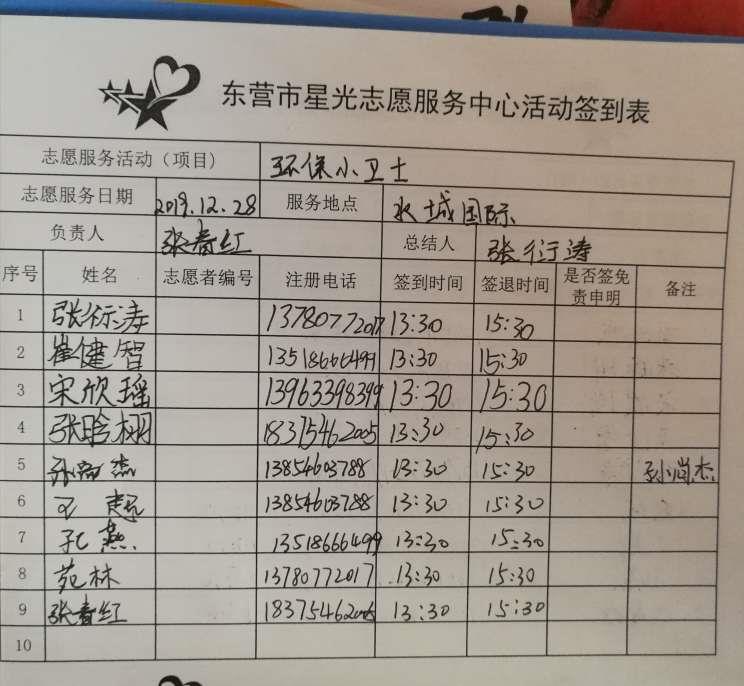 东营市星光志愿服务中心活动签到表
志愿服务活动（项目） 环保小卫士
志愿服务日期 2019.12.28 服务地点 水城国际
负责人 张春红 总结人 张衍涛
序号 姓名 志愿者编号 注册电话 签到时间 签退时间 是否签免责申明 备注
1 张衍涛 13780772017 13:30 15:30
2 崔健智 13518666499 13:30 15:30
3 宋欣瑶 13963398399 13:30 15:30
4 张晗栩 18375462005 13:30 15:30
5 孙尚杰 13854603788 13:30 15:30 孙尚杰
6 13854603788 13:30 15:30
7 孔燕 13518666499 13:30 15:30
8 苑林 13780772017 13:30 15:30
9 张春红 18375462005 13:30 15:30
10